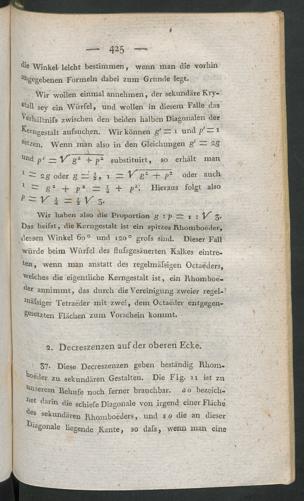 — 425 —
die Winkel leicht bestimmen, wenn man die vorhin
angegebenen Formeln dabei zum Grunde legt.
Wir wollen einmal annehmen, der sekundäre Kry-
stall sey ein Würfel, und wollen in diesem Falle das
Verhältniſs zwischen den beiden halben Diagonalen der
Kerngestalt aufsuchen. Wir können g' = 1 und p' = 1
setzen. Wenn man also in den Gleichungen g' = 2g
und p' = √ g² + p² substituirt, so erhält man
1 = 2g oder g = ½, 1 = √ g² + p² oder auch
1 = g² + p² = ¼ + p². Hieraus folgt also
p = √ ¾ = ½ √ 3.
Wir haben also die Proportion g : p = 1 : √ 3.
Das heiſst, die Kerngestalt ist ein spitzes Rhomboëder,
dessen Winkel 60° und 120° groſs sind. Dieser Fall
würde beim Würfel des fluſsgesäuerten Kalkes eintre-
ten, wenn man anstatt des regelmäſsigen Octaëders,
welches die eigentliche Kerngestalt ist, ein Rhomboë-
der annimmt, das durch die Vereinigung zweier regel-
mäſsiger Tetraëder mit zwei, dem Octaëder entgegen-
gesetzten Flächen zum Vorschein kommt.
2. Decreszenzen auf der oberen Ecke.
37. Diese Decreszenzen geben beständig Rhom-
boëder zu sekundären Gestalten. Die Fig. 11 ist zu
unserem Behufe noch ferner brauchbar. ao bezeich-
net darin die schiefe Diagonale von irgend einer Fläche
des sekundären Rhomboëders, und so die an dieser
Diagonale liegende Kante, so daſs, wenn man eine